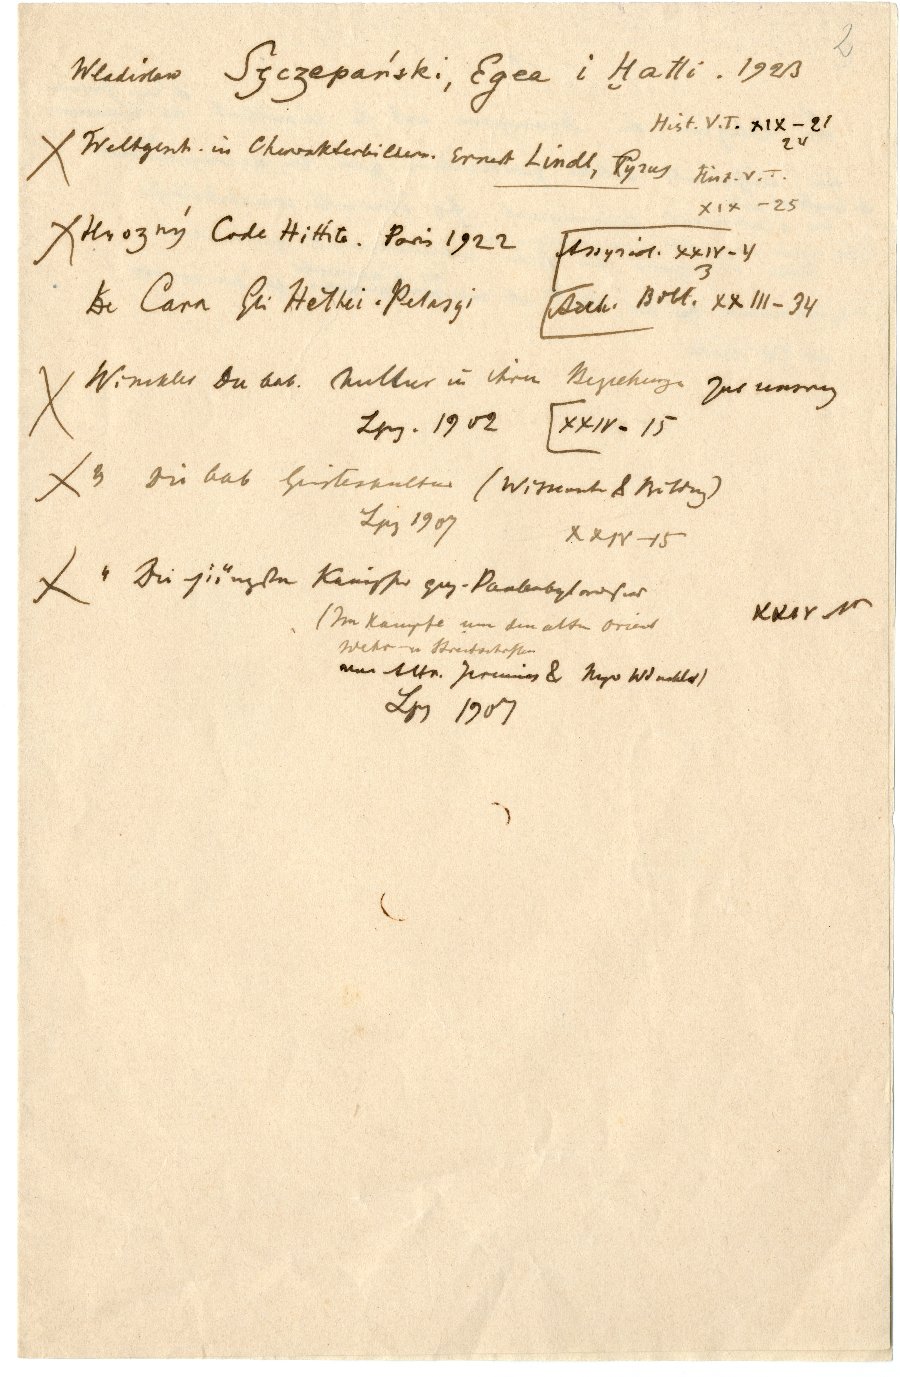 2
Wladislaw Szczepański, Egea i Ḫatti . 1923
Hist. V.T. XIX - 21
24
X Weltgesch. in Charakterbildern. Ernest Lindl, Cyrus
Hist. V. T.
XIX - 25
X Hrozný Code Hittite. Paris 1922 Assyriol. XXIV - 4
3
De Cara Gli Hethei - Pelasgi Arch. Bibl. XXIII - 34
X Winckler Die bab. Kultur in ihren Beziehungen zur unsrig
Lpz. 1902 XXIV - 15
X " Die bab Geisteskultur (Wissensch & Bildung)
Lpz 1907 XXIV - 15
X " Die jüngsten Kämpfer geg. Panbabylonismus
XXIV - 15
(Im Kampfe um den alten Orient
Wehr- u Streitschriften
von Alfr. Jeremias & Hugo Winckler)
Lpz 1907